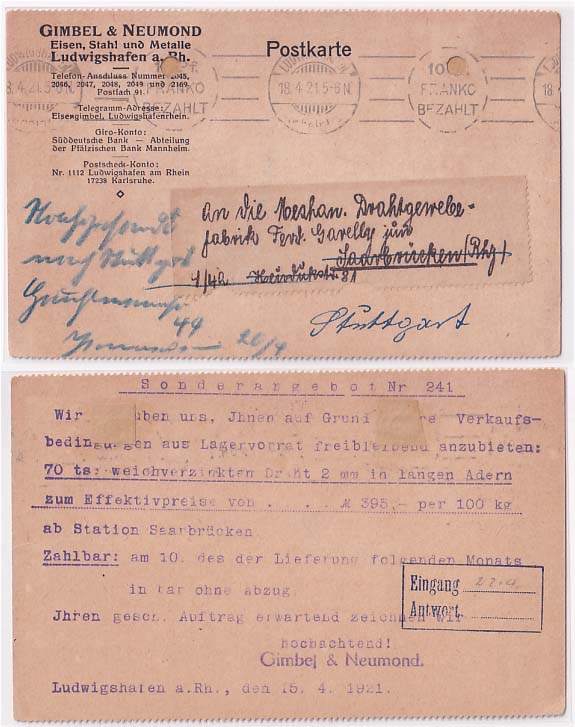 GIMBEL & NEUMOND
Eisen, Stahl und Metalle
Ludwigshafen a. Rh.
Telefon-Anschluss Nummer 2045,
2046, 2047, 2048, 2049 und 2169.
Postfach 91.
Telegramm-Adresse:
Eisengimbel, Ludwigshafenrhein.
Giro-Konto:
Süddeutsche Bank — Abteilung
der Pfälzischen Bank Mannheim.
Postscheck-Konto:
Nr. 1112 Ludwigshafen am Rhein
17238 Karlsruhe.
Postkarte
18.4.21.5-6N.
FRANKO
BEZAHLT
18.4.21.5-6N.
FRANKO
BEZAHLT
An die Meshan. Drahtgewebe-
fabrik Ferd. Garelly jun
Saarbrücken (Rhg)
Stuttgart
49
20/4
Sonderangebot Nr 241
Wir ben uns, Jhnen auf Grun re Verkaufs-
bedingungen aus Lagervorrat freibleibend anzubieten:
70 ts. weichverzinkten Draht 2 mm in langen Adern
zum Effektivpreise von . . . . M 395,- per 100 kg
ab Station Saarbrücken.
Zahlbar: am 10. des der Lieferung folgenden Monats
in bar ohne abzug.
Jhren gesch. Auftrag erwartend zeichnen wir
hochachtend!
Gimbel & Neumond.
Ludwigshafen a.Rh., den 15. 4. 1921.
Eingang
Antwort